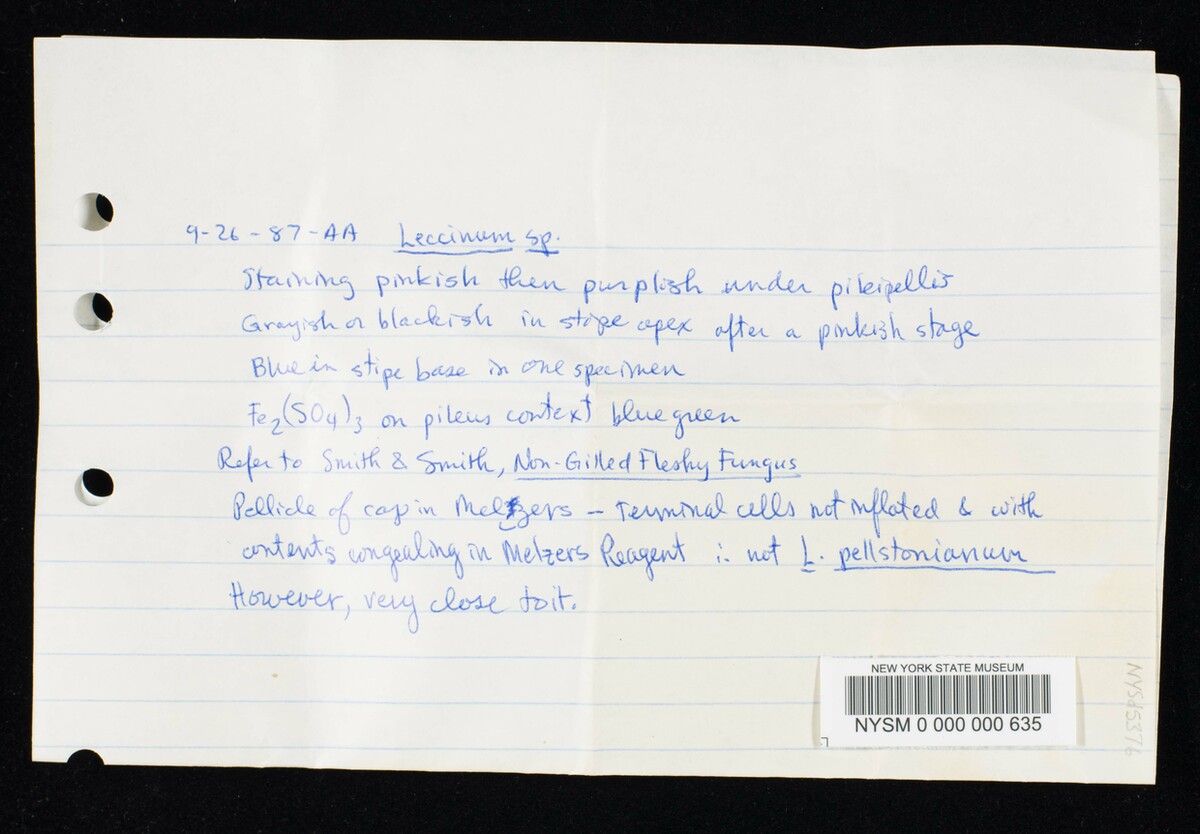 9-26-87-AA Leccinum sp.
Staining pinkish then purplish under pileipellis
Grayish or blackish in stipe apex after a pinkish stage
Blue in stipe base in one specimen
Fe₂(SO₄)₃ on pileus context blue green
Refer to Smith & Smith, Non-Gilled Fleshy Fungus
Pellicle of cap in Melzers – Terminal cells not inflated & with
contents congealing in Melzers Reagent ∴ not L. pellstonianum
However, very close to it.
NEW YORK STATE MUSEUM
NYSM 0 000 000 635
NYSd5376